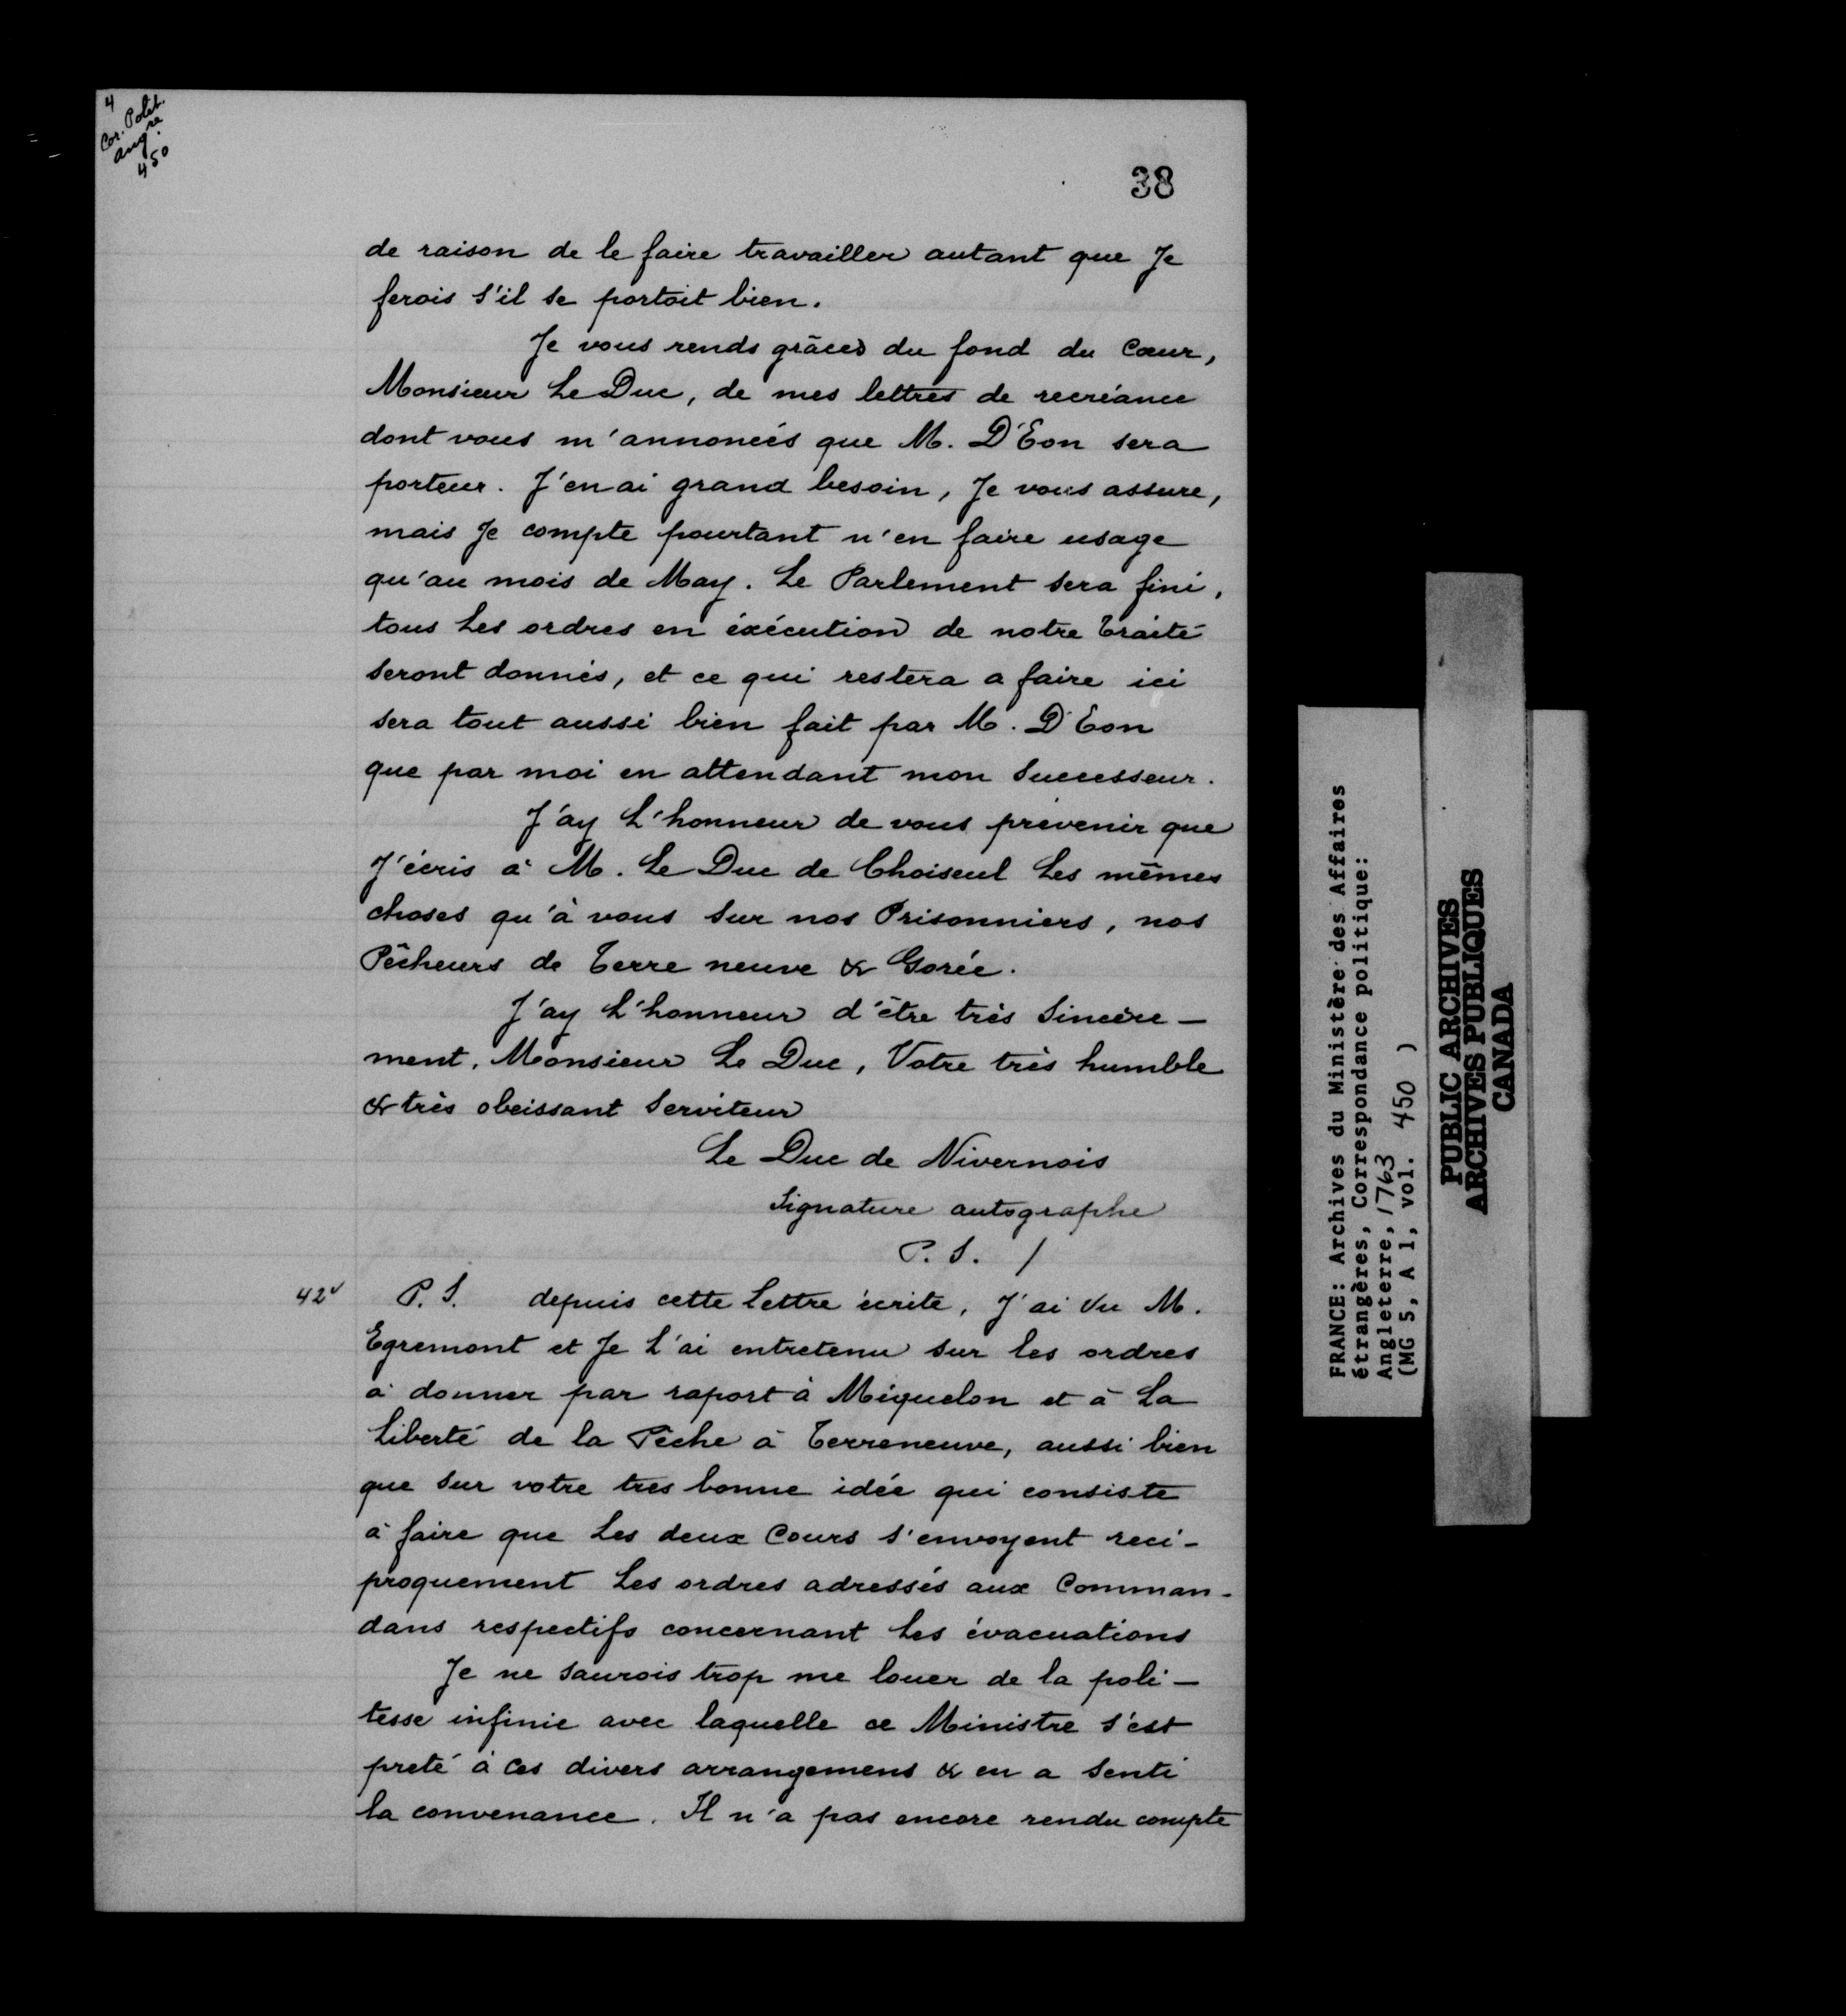 4
Cor. Polit.
Ang.re
450
38
de raison de le faire travailler autant que Je
ferois s'il se portoit bien.
Je vous rends grâces du fond du Cœur,
Monsieur Le Duc, de mes lettres de recréance
dont vous m'annoncés que M. D'Eon sera
porteur. J'en ai grand besoin, Je vous assure,
mais Je compte pourtant n'en faire usage
qu'au mois de May. Le Parlement sera fini,
tous Les ordres en éxécution de notre Traité
seront donnés, et ce qui restera a faire ici
sera tout aussi bien fait par M. D'Eon
que par moi en attendant mon Successeur.
J'ay L'honneur de vous prévenir que
J'écris à M. Le Duc de Choiseul Les mêmes
choses qu'à vous sur nos Prisonniers, nos
Pêcheurs de Terre neuve & Gorée.
J'ay L'honneur d'être très Sincère-
ment, Monsieur Le Duc, Votre très humble
& très obeissant Serviteur
Le Duc de Nivernois
Signature autographe
P.S. /
42v P.S. depuis cette Lettre écrite, J'ai Vu M.
Egremont et Je L'ai entretenu sur les ordres
à donner par raport à Miquelon et à La
Liberté de la Pêche à Terreneuve, aussi bien
que sur votre tres bonne idée qui consiste
à faire que Les deux Cours s'envoyent reci-
proquement Les ordres adressés aux Comman-
dans respectifs concernant Les évacuations
Je ne saurois trop me louer de la poli-
tesse infinie avec laquelle ce Ministre s'est
preté à ces divers arrangemens & en a senti
la convenance. Il n'a pas encore rendu compte
FRANCE: Archives du Ministère des Affaires
étrangères, Correspondance politique:
Angleterre, 1763
(MG 5, A 1, vol. 450 )
PUBLIC ARCHIVES
ARCHIVES PUBLIQUES
CANADA